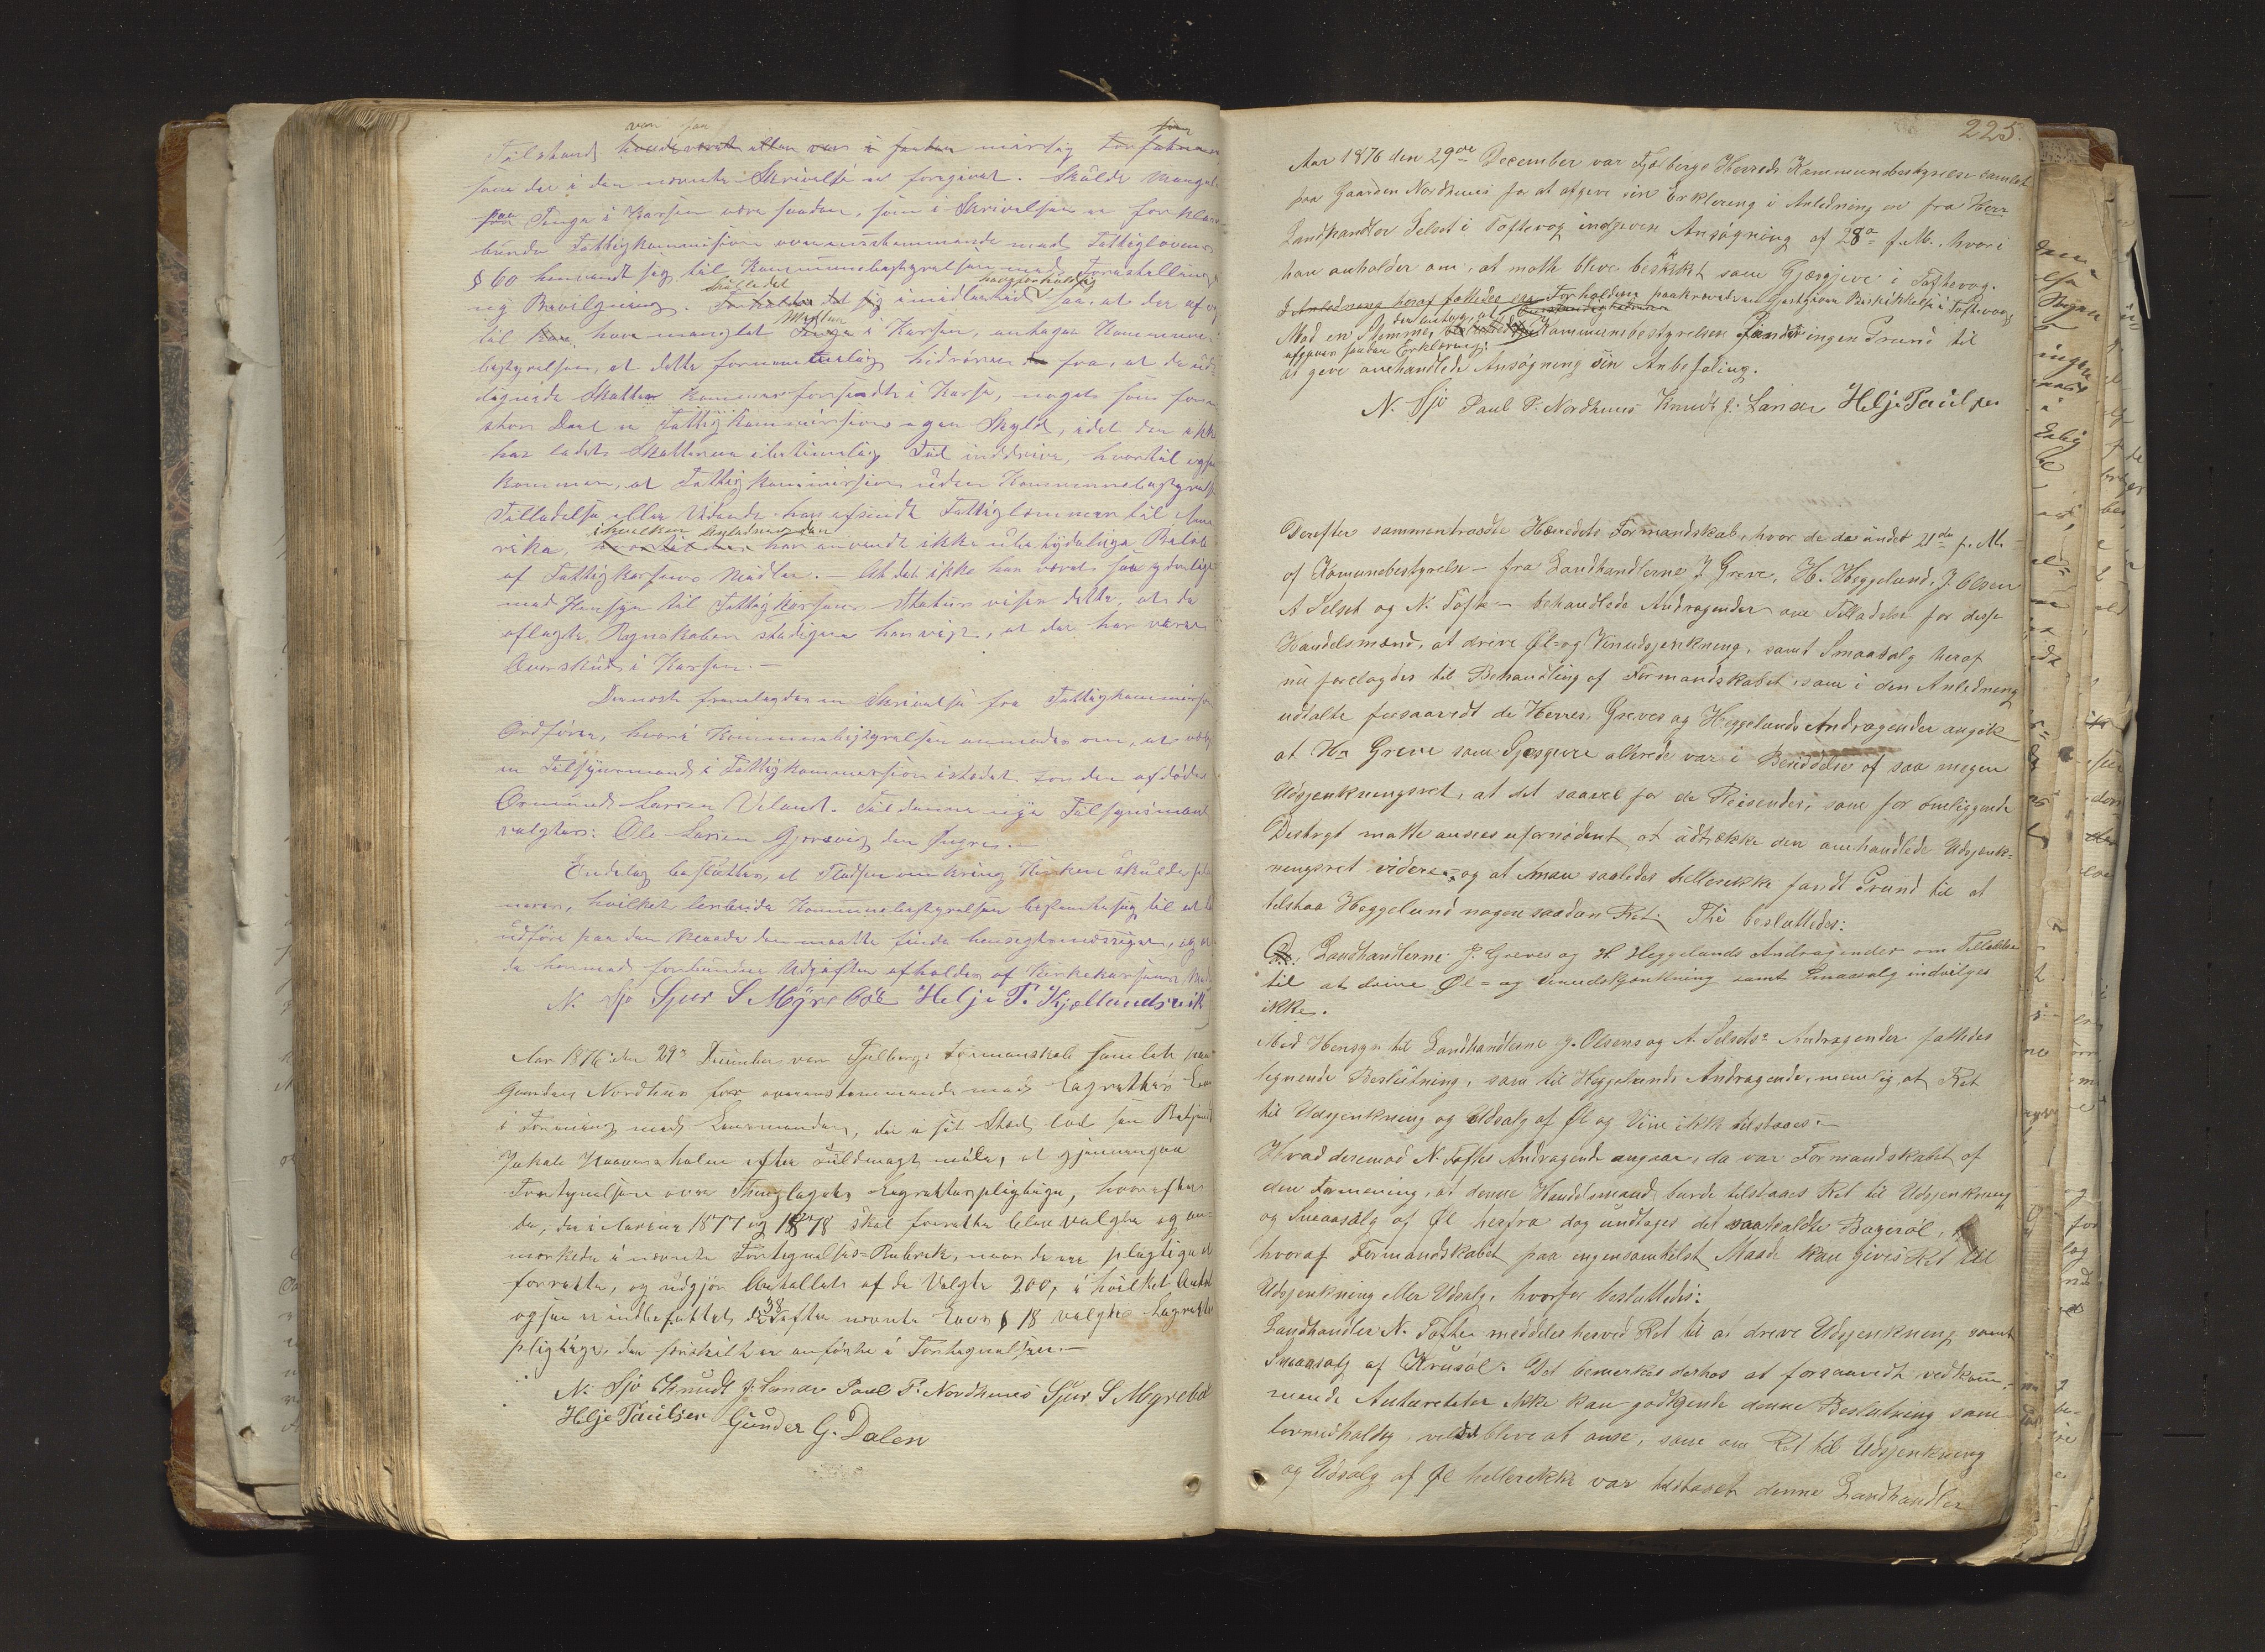 var saa
Tilstand havde været eller var i saadan mislig Forfatning
som der i den nævnte Skrivelse er foregivet. Skulde Mangel
paa Penge i Kassen være saadan, som i Skrivelsen er forklaret
burde Fattigkommisjonen overensstemmende med Fattiglovens
§ 60 henvendt sig til Kommunebestyrelsen med Forestilling
ny Bevilgning. Forholder det sig imidlertid saa, at der af og
til have manglet Penge i Kassen, antager Kommune-
bestyrelsen, at dette formeentlig hidrører fra, at de ud-
lignede Skatter kommer forsendt i Kasse, noget som for en
stor Deel er Fattigkommissionens egen Skyld, idet den ikke
har ladet Skatterne i betimelig Tid inddrive, hvortil ogsaa
kommer, at Fattigkommissionen uden Kommunebestyrelsens
Tilladelse eller Vidende har afsendt Fattiglemmer til Ame-
rika, i hvilken Anledning den har anvendt ikke ubetydelige Beløb
af Fattigkassens Midler. — At det ikke har været saa ydmygt
med Hensyn til Fattigkassens Status viser dette, at de
aflagte Regnskaber stadigen har vist, at der har været
Overskud i Kassen. —
Dernæst fremlagdes en Skrivelse fra Fattigkommissionens
Ordfører, hvori Kommunebestyrelsen anmodes om, at vælge
en Tilsynsmand i Fattigkommission istedet for den afdøde
Ormund Larsen Veland. Til denne nye Tilsynsmand
valgtes: Ole Larsen Gjersvig den Yngre. —
Endelig besluttes, at Pladsen omkring Kirken skulde
, hvilket Arbeide Kommunebestyrelsen bestemte sig til at lade
udføre paa den Maade den maatte finde hensigtsmæssigst, og at
de hermed forbundne Udgifter afholdes af Kirkekassens Midler
N. Sjo Sjur S Myrebøe Helje T. Kjællandsvik
Aar 1876 den 29de December var Fjelbergs Formandskab samlet paa
Gaarden Nordhuus for overensstemmende med Lagrettes Lov
i Forening med Lensmanden, der i sit Sted lod sin Betjent
Jakob Haaversholm efter Fuldmagt møde, at gjennemgaa
Fortegnelsen over Thinglagets Lagrettespligtige, hvorefter
de, der i Aarene 1877 og 1878 skal forrette bleve valgte og an-
mærkede i nævnte Fortegnelses-Rubrik, naar de ere pligtige at
forrette, og udgjør Antallet af de Valgte 200, i hvilket Antal
ogsaa er indbefattet de 38 efter nævnte Lovs § 18 valgte Lagrettes
pligtige, der særskilt er anførte i Fortegnelsen. —
N. Sjo Knudt J. Lande Paul P. Nordhuus Sjur S Myrebø
Helje Paulsen Gunder G. Dalen
225.
Aar 1876 den 29de December var Fjelbergs Herreds Kommunebestyrelse samlet
paa Gaarden Nordhuus for at afgive sin Erklæring i Anledning en fra Herr
Landhandler Selset i Toftevog indgiven Ansøgning af 28de f. M., hvori
han anholder om, at motte blive beskikket som Gjæsgiver i Toftevog.
I Anledning heraf fattedes en Forholdene paakrævedes en Gjestgiver Beskikkelse i Toftevog
Mod en Stemme, der antog, at Kommunebestyrelsen fandt ingen Grund til
afgiver saadan Erklæring:
at give omhandlede Ansøgning sin Anbefaling.
N. Sjo Paul P. Nordhuus Knudt J. Lande Helje Paulsen
Derefter sammentraadte Herredets Formandskab, hvor de da under 21de f. M.
af Komunebestyrelsen — fra Landhandlerne J. Greve, H. Heggelund, J. Olsen
A Selset og N. Tofte — behandlede Andragender om Tilladelse for disse
Handelsmænd, at drive Øl- og Vinudsjenkning, samt Smaasalg heraf
nu foretages til Behandling af Formandskabet, som i den Anledning
udtalte forsaavidt de Herrer Greves og Heggelunds Andragender angik
at Hr. Greve som Gjesgiver allerede var i Besiddelse af saa megen
Udsjenkningsret, at det saavel for de Reisende, som for omliggende
Destrigt matte ansees ufornødent, at udstrække den omhandlede Udsjenk-
ningsret videre — og at man saaledes hellerikke fandt Grund til at
tilstaa Heggelund nogen saadan Ret. Thi besluttedes:
Landhandlerne J. Greves og H. Heggelunds Andragender om Tilladelse
til at drive Øl- og Vinudskjænkning samt Smaasalg indvilges
ikke.
Med Hensyn til Landhandlerne J. Olsens og A. Selsets Andragender fattedes
lignende Beslutning, som til Heggelunds Andragende, nemlig, at Ret
til Udsjenkning og Udsalg af Øl og Viin ikke tilstaaes. —
Hvad deremod N. Toftes Andragende angaar, da var Formandskabet af
den Formening, at denne Handelsmand burde tilstaaes Ret til Udsjenkning
og Smaasalg af Øl herfra dog undtages det saakaldte Bayerøl,
hvoraf Formandskabet paa ingensomhelst Maade kan gives Ret til
Udsjenkning eller Udsalg, hvorfor besluttedes:
Landhandler N. Tofte meddeles herved Ret til at dreve Udsjenkning samt
Smaasalg af Krusøl. Det bemerkes derhos at forsaavidt vedkom-
mende Autoriteter ikke kan godkjende denne Beslutning som
lovmedholdig, vil det blive at anse, som om Ret til Udsjenkning
og Udsalg af Øl hellerikke var tilstaaet denne Landhandler